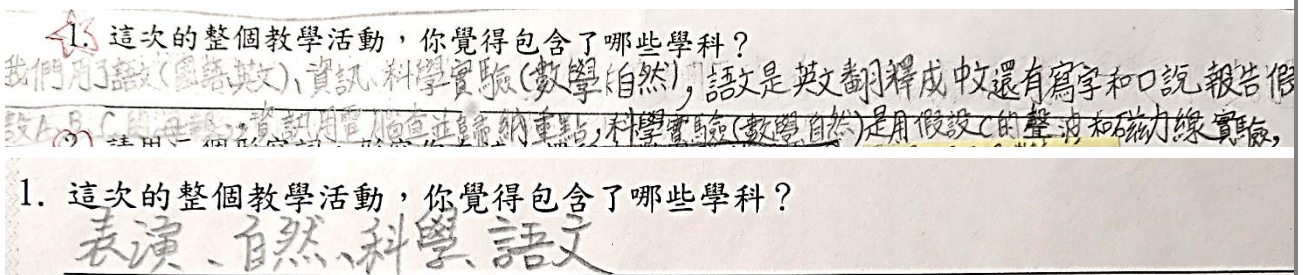 1. 這次的整個教學活動，你覺得包含了哪些學科？
我們用了語文(國語.英文)、資訊、科學實驗(數學.自然)，語文是英文翻釋成中文還有寫字和口說報告假
設A、B、C的海報，資訊用電腦查並歸納重點，科學實驗(數學.自然)是用假設C的聲波和磁力線實驗，
1. 這次的整個教學活動，你覺得包含了哪些學科？
表演、自然、科學、語文